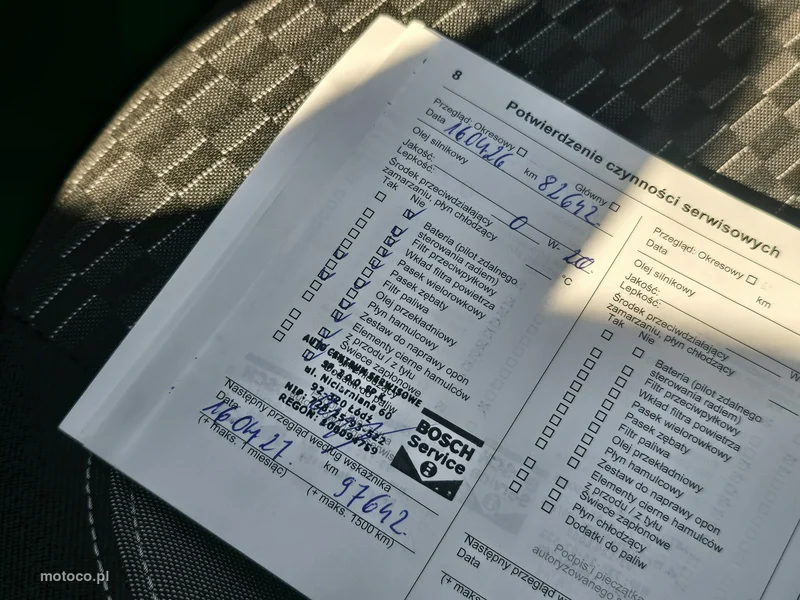 8
Potwierdzenie czynności serwisowych
Przegląd: Okresowy
Główny
Data 160426 km 82642
Olej silnikowy
Jakość:
Lepkość: 0 W- 20
Środek przeciwdziałający
zamarzaniu, płyn chłodzący °C
Tak Nie
Bateria (pilot zdalnego
sterowania radiem)
Filtr przeciwpyłkowy
Wkład filtra powietrza
Pasek wielorowkowy
Pasek zębaty
Filtr paliwa
Olej przekładniowy
Płyn hamulcowy
Zestaw do naprawy opon
Elementy cierne hamulców
z przodu / z tyłu
Świece zapłonowe
AUTO CENTRUM SERWISOWE
SP. Z O.O. SP.K.
ul. Niciarniana 60
92-320 Łódź
NIP
REGON
BOSCH
Service
Następny przegląd według wskaźnika
Data 160427 km 97642
(+ maks. 1 miesiąc) (+ maks. 1500 km)
Przegląd: Okresowy
Data km
Olej silnikowy
Jakość:
Lepkość:
Środek przeciwdziałający
zamarzaniu, płyn chłodzący
Tak Nie
Bateria (pilot zdalnego
sterowania radiem)
Filtr przeciwpyłkowy
Wkład filtra powietrza
Pasek wielorowkowy
Pasek zębaty
Filtr paliwa
Olej przekładniowy
Płyn hamulcowy
Zestaw do naprawy opon
Elementy cierne hamulców
z przodu / z tyłu
Świece zapłonowe
Płyn chłodzący
Dodatki do paliw
Podpis i pieczątka
autoryzowanego
Następny przegląd
Data
(+ maks.
motoco.pl